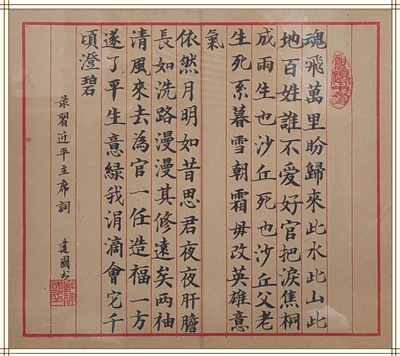 魂飛萬里盼歸來此水此山此
地百姓誰不愛好官把淚焦桐
成雨生也沙丘死也沙丘父老
生死系暮雪朝霜毋改英雄意
氣
依然月明如昔思君夜夜肝膽
長如洗路漫漫其修遠矣兩袖
清風來去為官一任造福一方
遂了平生意綠我涓滴會它千
頃澄碧
录習近平主席詞
建國书